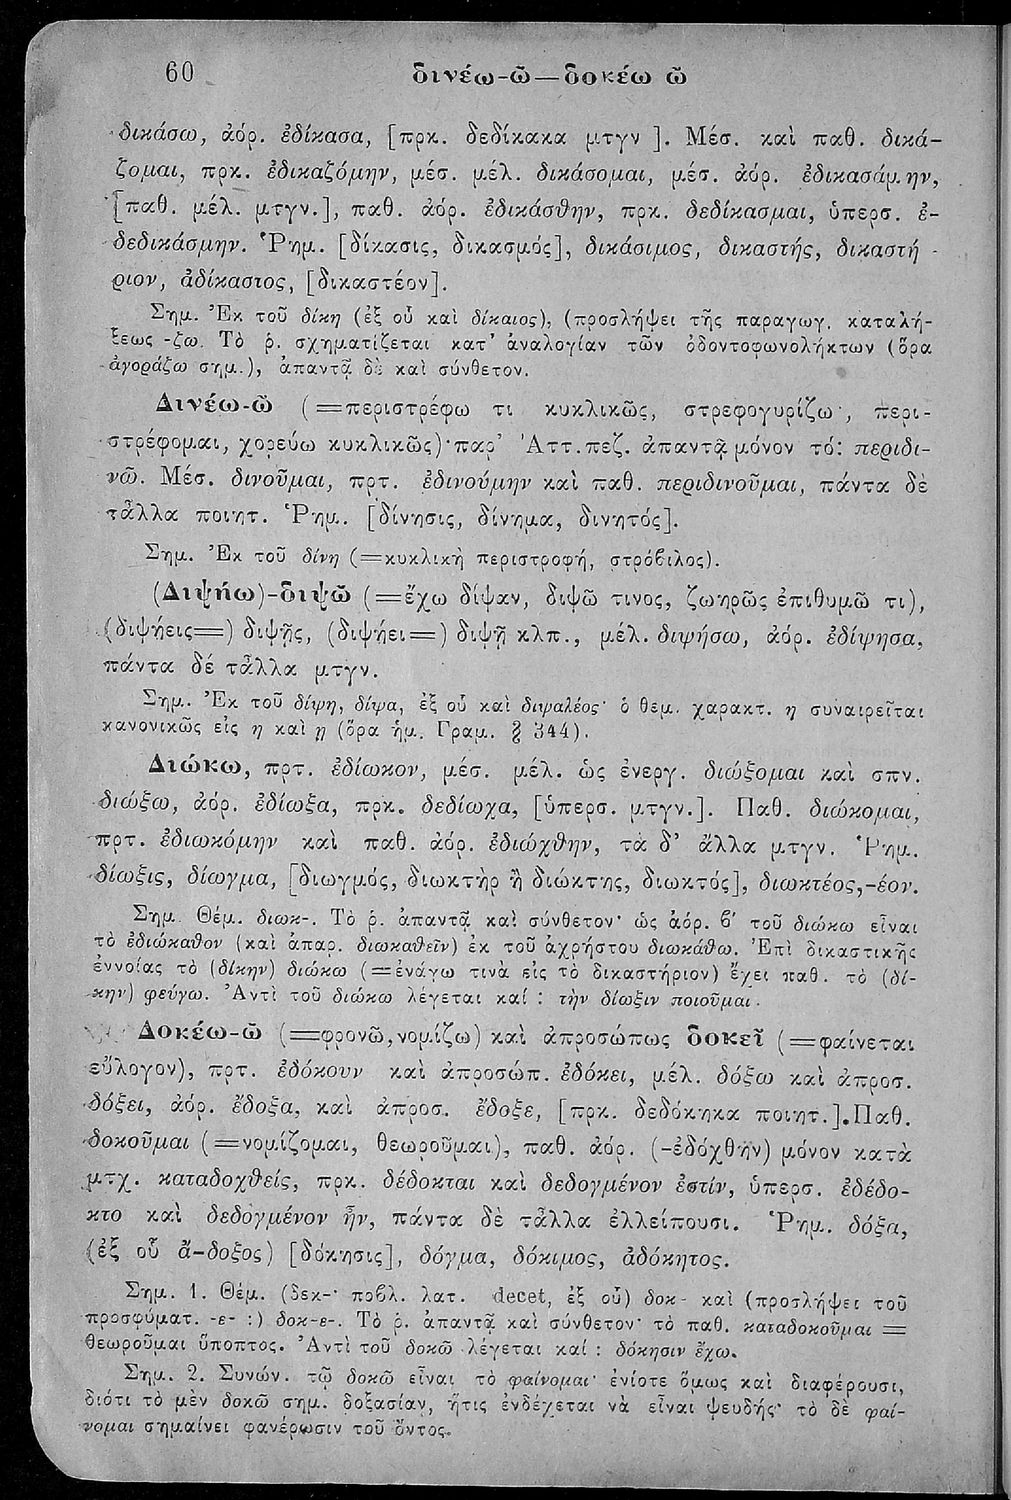 60 δινέω-ῶ—δοκέω ῶ
δικάσω, ἀόρ. ἐδίκασα, [πρκ. δεδίκακα μτγν ]. Μέσ. καὶ παθ. δικά-
ζομαι, πρκ. ἐδικαζόμην, μέσ. μέλ. δικάσομαι, μέσ. ἀόρ. ἐδικασάμην,
[παθ. μέλ. μτγν.], παθ. ἀόρ. ἐδικάσθην, πρκ. δεδίκασμαι, ὑπερσ. ἐ-
δεδικάσμην. Ῥημ. [δίκασις, δικασμός], δικάσιμος, δικαστής, δικαστή -
ριον, ἀδίκαστος, [δικαστέον].
Σημ. Ἐκ τοῦ δίκη (ἐξ οὗ καὶ δίκαιος), (προσλήψει τῆς παραγωγ. καταλή-
ξεως -ζω. Τὸ ῥ. σχηματίζεται κατ' ἀναλογίαν τῶν ὀδοντοφωνολήκτων (ὅρα
ἀγοράζω σημ.), ἀπαντᾷ δὲ καὶ σύνθετον.
Δινέω-ῶ (=περιστρέφω τι κυκλικῶς, στρεφογυρίζω, περι-
στρέφομαι, χορεύω κυκλικῶς)· παρ' Ἀττ. πεζ. ἀπαντᾷ μόνον τό: περιδι-
νῶ. Μέσ. δινοῦμαι, πρτ. ἐδινούμην καὶ παθ. περιδινοῦμαι, πάντα δὲ
τἆλλα ποιητ. Ῥημ. [δίνησις, δίνημα, δινητός].
Σημ. Ἐκ τοῦ δίνη (=κυκλικὴ περιστροφή, στρόβιλος).
(Διψήω)-διψῶ (=ἔχω δίψαν, διψῶ τινος, ζωηρῶς ἐπιθυμῶ τι),
(διψήεις=) διψῇς, (διψήει=) διψῇ κλπ., μέλ. διψήσω, ἀόρ. ἐδίψησα,
πάντα δέ τἆλλα μτγν.
Σημ. Ἐκ τοῦ δίψη, δίψα, ἐξ οὗ καὶ διψαλέος· ὁ θεμ. χαρακτ. η συναιρεῖται
κανονικῶς εἰς η καὶ ῃ (ὅρα ἡμ. Γραμ. § 344).
Διώκω, πρτ. ἐδίωκον, μέσ. μέλ. ὡς ἐνεργ. διώξομαι καὶ σπν.
διώξω, ἀόρ. ἐδίωξα, πρκ. δεδίωχα, [ὑπερσ. μτγν.]. Παθ. διώκομαι,
πρτ. ἐδιωκόμην καὶ παθ. ἀόρ. ἐδιώχθην, τὰ δ' ἄλλα μτγν. Ῥημ.
δίωξις, δίωγμα, [διωγμός, διωκτὴρ ἢ διώκτης, διωκτός], διωκτέος,-έον.
Σημ. Θέμ. διωκ-. Τὸ ῥ. ἀπαντᾷ καὶ σύνθετον· ὡς ἀόρ. β' τοῦ διώκω εἶναι
τὸ ἐδιώκαθον (καὶ ἀπαρ. διωκαθεῖν) ἐκ τοῦ ἀχρήστου διωκάθω. Ἐπὶ δικαστικῆς
ἐννοίας τὸ (δίκην) διώκω (=ἐνάγω τινὰ εἰς τὸ δικαστήριον) ἔχει παθ. τὸ (δί-
κην) φεύγω. Ἀντὶ τοῦ διώκω λέγεται καί : τὴν δίωξιν ποιοῦμαι.
Δοκέω-ῶ (=φρονῶ, νομίζω) καὶ ἀπροσώπως δοκεῖ (=φαίνεται
εὔλογον), πρτ. ἐδόκουν καὶ ἀπροσώπ. ἐδόκει, μέλ. δόξω καὶ ἀπροσ.
δόξει, ἀόρ. ἔδοξα, καὶ ἀπροσ. ἔδοξε, [πρκ. δεδόκηκα ποιητ.]. Παθ.
δοκοῦμαι (=νομίζομαι, θεωροῦμαι), παθ. ἀόρ. (-ἐδόχθην) μόνον κατὰ
μτχ. καταδοχθείς, πρκ. δέδοκται καὶ δεδογμένον ἐστίν, ὑπερσ. ἐδέδο-
κτο καὶ δεδογμένον ἦν, πάντα δὲ τἆλλα ἐλλείπουσι. Ῥημ. δόξα,
(ἐξ οὗ ἄ-δοξος) [δόκησις], δόγμα, δόκιμος, ἀδόκητος.
Σημ. 1. Θέμ. (δεκ-· πρβλ. λατ. decet, ἐξ οὗ) δοκ- καὶ (προσλήψει τοῦ
προσφύματ. -ε- :) δοκ-ε-. Τὸ ῥ. ἀπαντᾷ καὶ σύνθετον· τὸ παθ. καταδοκοῦμαι =
θεωροῦμαι ὕποπτος. Ἀντὶ τοῦ δοκῶ λέγεται καί : δόκησιν ἔχω.
Σημ. 2. Συνών. τῷ δοκῶ εἶναι τὸ φαίνομαι· ἐνίοτε ὅμως καὶ διαφέρουσι,
διότι τὸ μὲν δοκῶ σημ. δοξασίαν, ἥτις ἐνδέχεται νὰ εἶναι ψευδής· τὸ δὲ φαί-
νομαι σημαίνει φανέρωσιν τοῦ ὄντος.